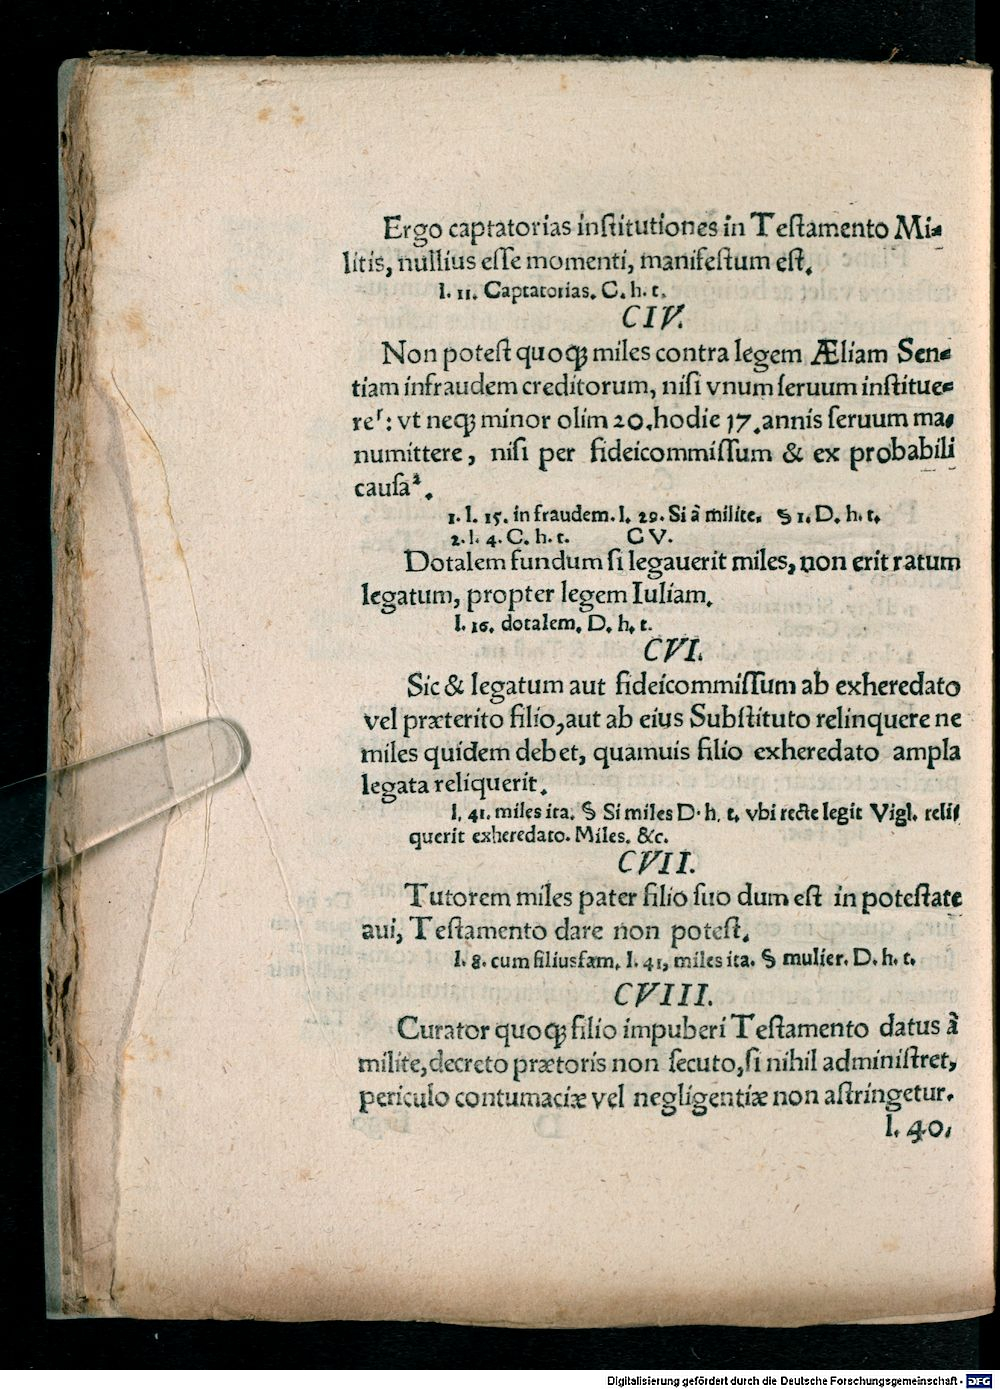 Ergo captatorias inſtitutiones in Teſtamento Mi⸗
litis, nullius eſſe momenti, manifeſtum eſt.
l. 11. Captatorias. C. h. t.
CIV.
Non poteſt quoq; miles contra legem Æliam Sen⸗
tiam infraudem creditorum, niſi vnum ſeruum inſtitue⸗
re¹: vt neq; minor olim 20. hodie 17. annis ſeruum ma⸗
numittere, niſi per fideicommiſſum & ex probabili
cauſa².
1. l. 15. in fraudem. l. 29. Si à milite. § 1. D. h. t.
2. l. 4. C. h. t. CV.
Dotalem fundum ſi legauerit miles, non erit ratum
legatum, propter legem Iuliam.
l. 16. dotalem. D. h. t.
CVI.
Sic & legatum aut fideicommiſſum ab exheredato
vel præterito filio, aut ab eius Subſtituto relinquere ne
miles quidem debet, quamuis filio exheredato ampla
legata reliquerit.
l. 41. miles ita. § Si miles D. h. t. vbi recte legit Vigl. reli⸗
querit exheredato. Miles. &c.
CVII.
Tutorem miles pater filio ſuo dum eſt in poteſtate
aui, Teſtamento dare non poteſt.
l. 8. cum filiusfam. l. 41, miles ita. § mulier. D. h. t.
CVIII.
Curator quoq; filio impuberi Teſtamento datus à
milite, decreto prætoris non ſecuto, ſi nihil adminiſtret,
periculo contumaciæ vel negligentiæ non aſtringetur.
l. 40.
Digitalisierung gefördert durch die Deutsche Forschungsgemeinschaft - DFG